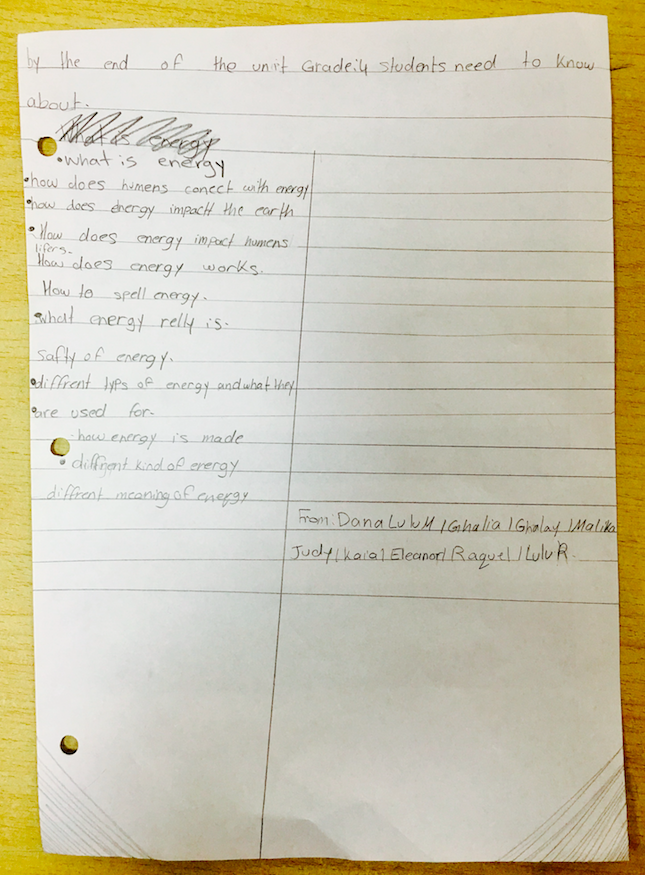 by the end of the unit Grade:4 students need to know
about.
What is energy
•what is energy
•how does humens conect with energy
•how does energy impact the earth
•How does energy impact humens
lifers.
How does energy works.
How to spell energy.
•what energy relly is.
safty of energy.
•diffrent typs of energy and what they
•are used for.
•how energy is made
•diffrent kind of energy
diffrent meaning of energy
From: Dana LuluM / Ghalia / Ghalay / Malika
Judy / Kaia / Eleanor / Raquel / LuluR.